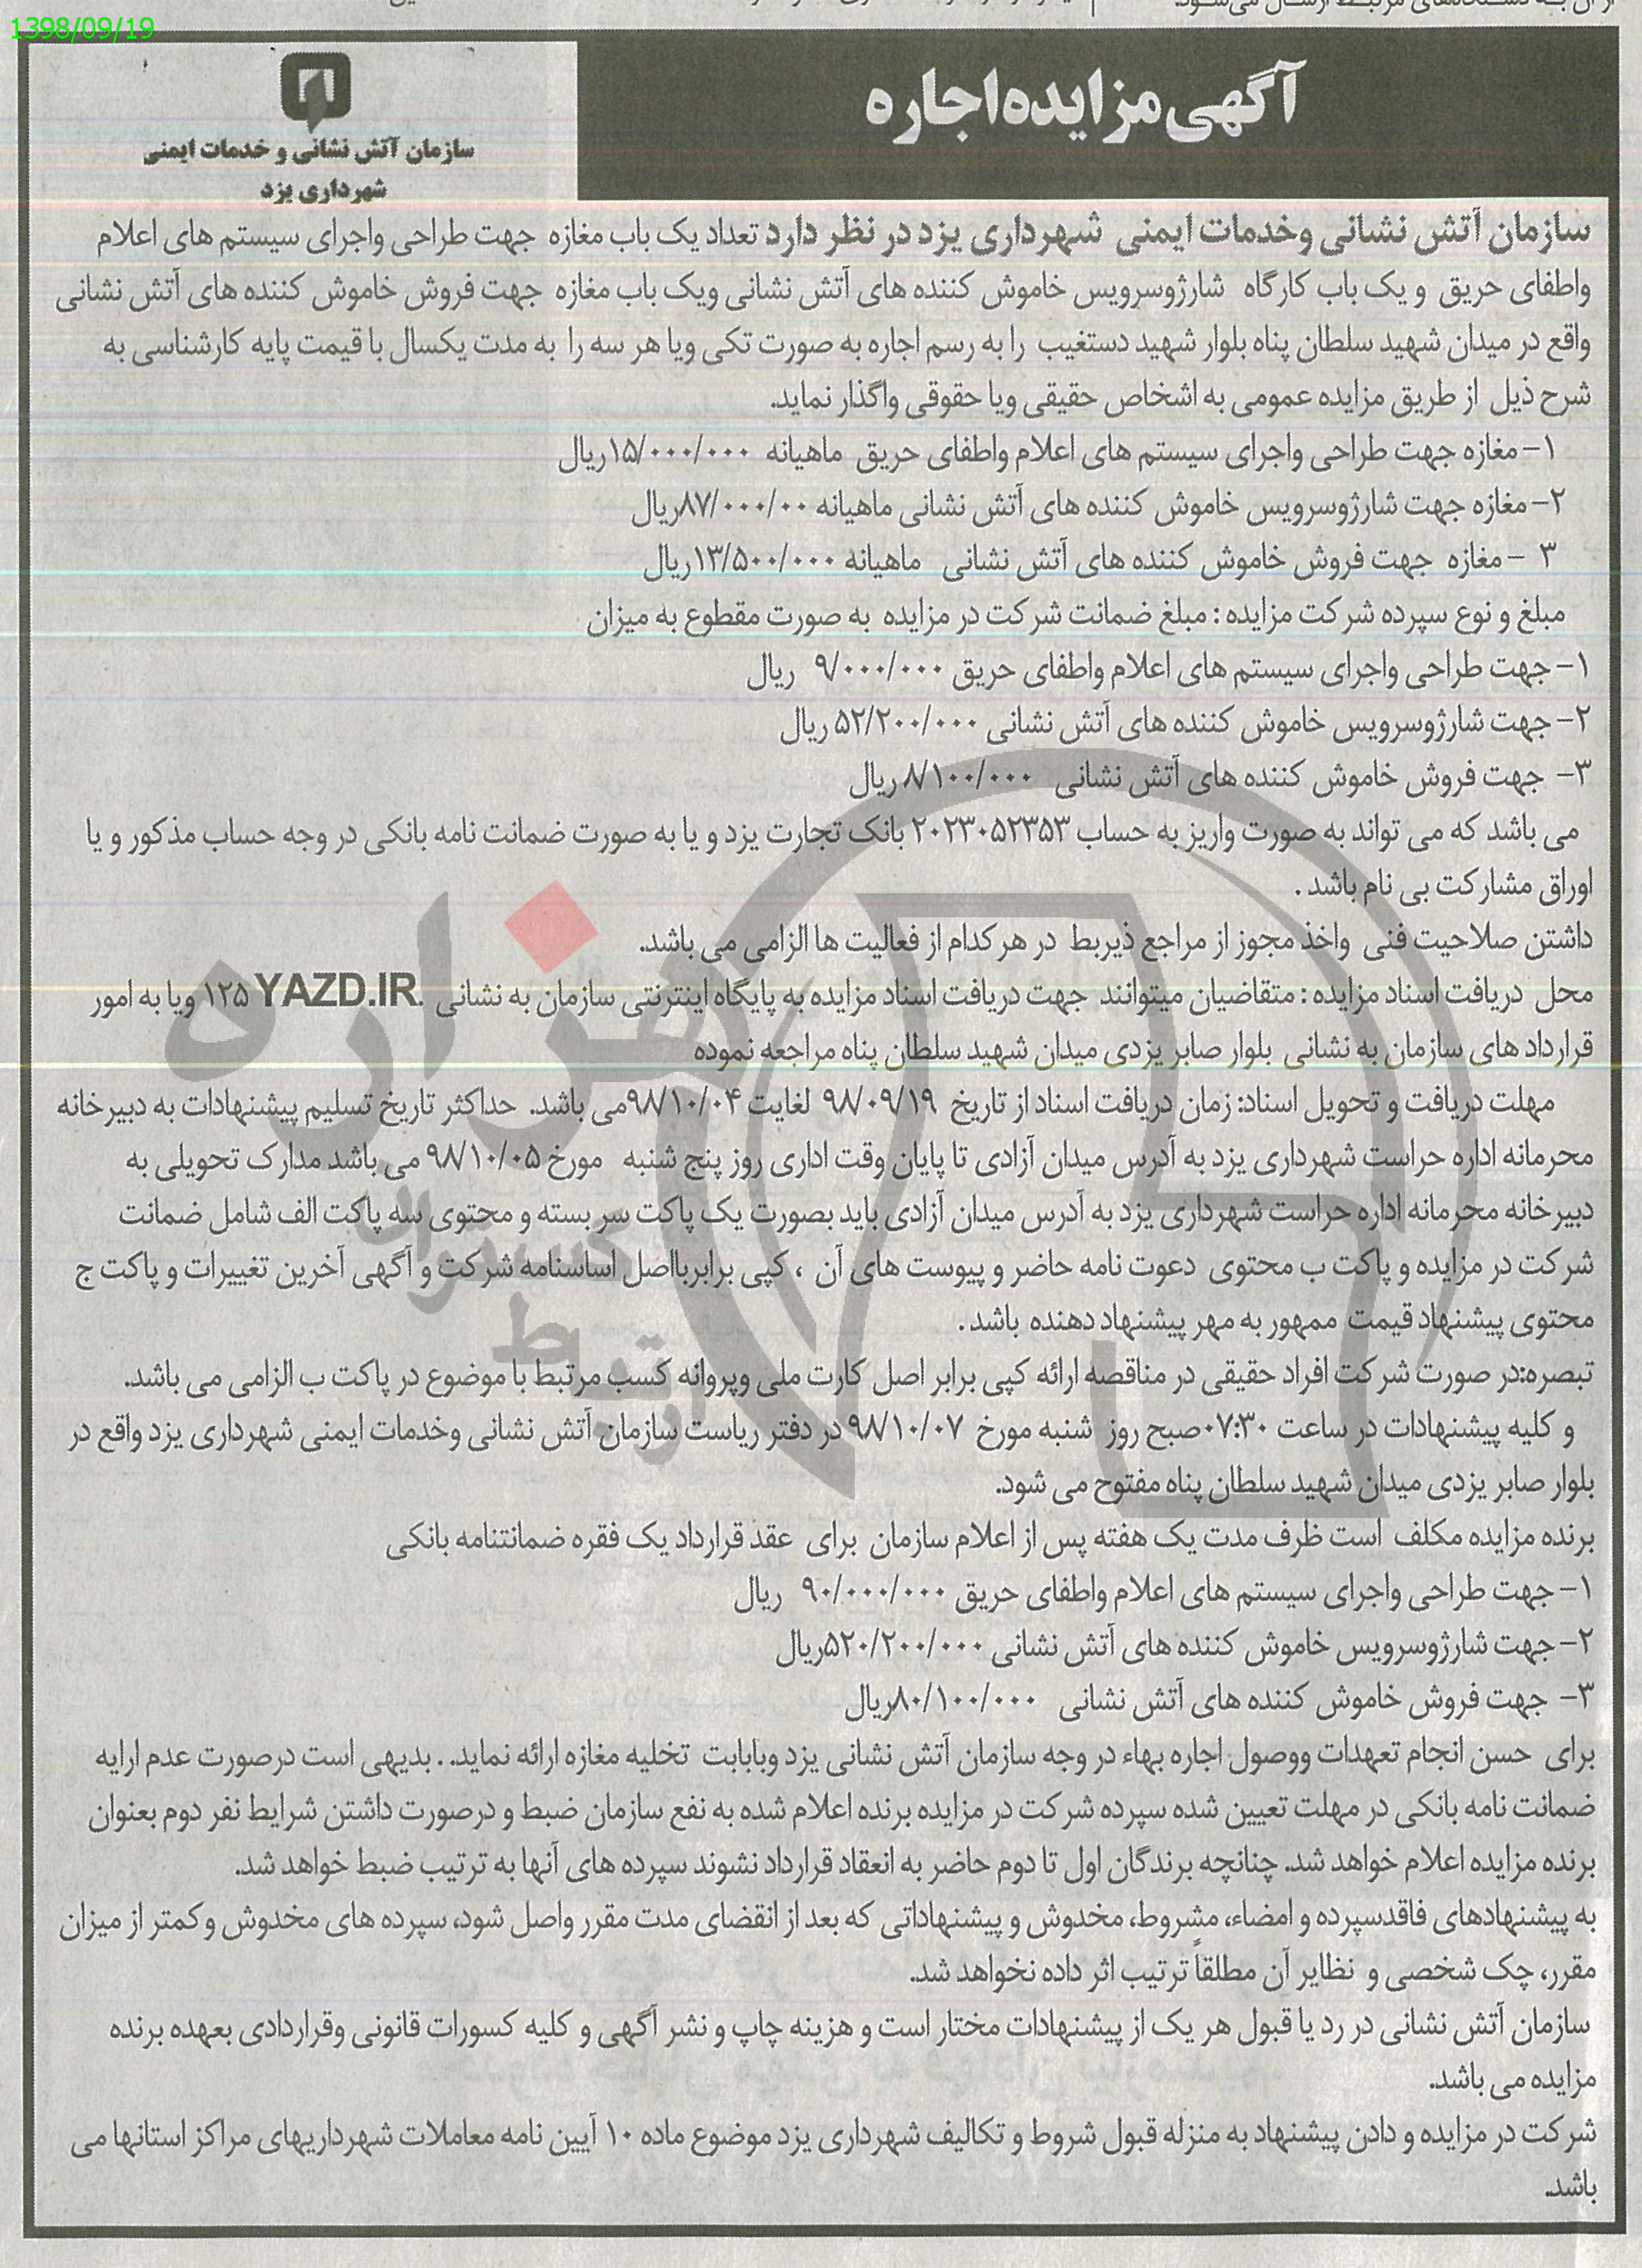 1398/09/19
آگهی مزایده اجاره
سازمان آتش نشانی و خدمات ایمنی
شهرداری یزد
سازمان آتش نشانی وخدمات ایمنی شهرداری یزد در نظر دارد تعداد یک باب مغازه جهت طراحی واجرای سیستم های اعلام
واطفای حریق و یک باب کارگاه شارژوسرویس خاموش کننده های آتش نشانی ویک باب مغازه جهت فروش خاموش کننده های آتش نشانی
واقع در میدان شهید سلطان پناه بلوار شهید دستغیب را به رسم اجاره به صورت تکی ویا هر سه را به مدت یکسال با قیمت پایه کارشناسی به
شرح ذیل از طریق مزایده عمومی به اشخاص حقیقی ویا حقوقی واگذار نماید.
۱- مغازه جهت طراحی واجرای سیستم های اعلام واطفای حریق ماهیانه ۱۵/۰۰۰/۰۰۰ریال
۲- مغازه جهت شارژوسرویس خاموش کننده های آتش نشانی ماهیانه ۸۷/۰۰۰/۰۰ریال
۳ - مغازه جهت فروش خاموش کننده های آتش نشانی ماهیانه ۱۳/۵۰۰/۰۰۰ریال
مبلغ و نوع سپرده شرکت مزایده : مبلغ ضمانت شرکت در مزایده به صورت مقطوع به میزان
۱- جهت طراحی واجرای سیستم های اعلام واطفای حریق ۹/۰۰۰/۰۰۰ ریال
۲- جهت شارژوسرویس خاموش کننده های آتش نشانی ۵۲/۲۰۰/۰۰۰ ریال
۳- جهت فروش خاموش کننده های آتش نشانی ۸/۱۰۰/۰۰۰ ریال
می باشد که می تواند به صورت واریز به حساب ۲۰۲۳۰۵۲۳۵۳ بانک تجارت یزد و یا به صورت ضمانت نامه بانکی در وجه حساب مذکور و یا
اوراق مشارکت بی نام باشد .
داشتن صلاحیت فنی واخذ مجوز از مراجع ذیربط در هر کدام از فعالیت ها الزامی می باشد.
محل دریافت اسناد مزایده : متقاضیان میتوانند جهت دریافت اسناد مزایده به پایگاه اینترنتی سازمان به نشانی .YAZD.IR ۱۲۵ ویا به امور
قرارداد های سازمان به نشانی بلوار صابر یزدی میدان شهید سلطان پناه مراجعه نموده
مهلت دریافت و تحویل اسناد: زمان دریافت اسناد از تاریخ ۹۸/۰۹/۱۹ لغایت ۹۸/۱۰/۰۴می باشد. حداکثر تاریخ تسلیم پیشنهادات به دبیرخانه
محرمانه اداره حراست شهرداری یزد به آدرس میدان آزادی تا پایان وقت اداری روز پنج شنبه مورخ ۹۸/۱۰/۰۵ می باشد مدارک تحویلی به
دبیرخانه محرمانه اداره حراست شهرداری یزد به آدرس میدان آزادی باید بصورت یک پاکت سر بسته و محتوی سه پاکت الف شامل ضمانت
شرکت در مزایده و پاکت ب محتوی دعوت نامه حاضر و پیوست های آن ، کپی برابربااصل اساسنامه شرکت و آگهی آخرین تغییرات و پاکت ج
محتوی پیشنهاد قیمت ممهور به مهر پیشنهاد دهنده باشد .
تبصره:در صورت شرکت افراد حقیقی در مناقصه ارائه کپی برابر اصل کارت ملی وپروانه کسب مرتبط با موضوع در پاکت ب الزامی می باشد.
و کلیه پیشنهادات در ساعت ۰۷:۳۰صبح روز شنبه مورخ ۹۸/۱۰/۰۷ در دفتر ریاست سازمان آتش نشانی وخدمات ایمنی شهرداری یزد واقع در
بلوار صابر یزدی میدان شهید سلطان پناه مفتوح می شود.
برنده مزایده مکلف است ظرف مدت یک هفته پس از اعلام سازمان برای عقد قرارداد یک فقره ضمانتنامه بانکی
۱- جهت طراحی واجرای سیستم های اعلام واطفای حریق ۹۰/۰۰۰/۰۰۰ ریال
۲- جهت شارژوسرویس خاموش کننده های آتش نشانی ۵۲۰/۲۰۰/۰۰۰ریال
۳- جهت فروش خاموش کننده های آتش نشانی ۸۰/۱۰۰/۰۰۰ریال
برای حسن انجام تعهدات ووصول اجاره بهاء در وجه سازمان آتش نشانی یزد وبابابت تخلیه مغازه ارائه نماید. . بدیهی است درصورت عدم ارایه
ضمانت نامه بانکی در مهلت تعیین شده سپرده شرکت در مزایده برنده اعلام شده به نفع سازمان ضبط و درصورت داشتن شرایط نفر دوم بعنوان
برنده مزایده اعلام خواهد شد. چنانچه برندگان اول تا دوم حاضر به انعقاد قرارداد نشوند سپرده های آنها به ترتیب ضبط خواهد شد.
به پیشنهادهای فاقدسپرده و امضاء، مشروط، مخدوش و پیشنهاداتی که بعد از انقضای مدت مقرر واصل شود، سپرده های مخدوش وکمتر از میزان
مقرر، چک شخصی و نظایر آن مطلقاً ترتیب اثر داده نخواهد شد.
سازمان آتش نشانی در رد یا قبول هر یک از پیشنهادات مختار است و هزینه چاپ و نشر آگهی و کلیه کسورات قانونی وقراردادی بعهده برنده
مزایده می باشد.
شرکت در مزایده و دادن پیشنهاد به منزله قبول شروط و تکالیف شهرداری یزد موضوع ماده ۱۰ آیین نامه معاملات شهرداریهای مراکز استانها می
باشد.
هزاره